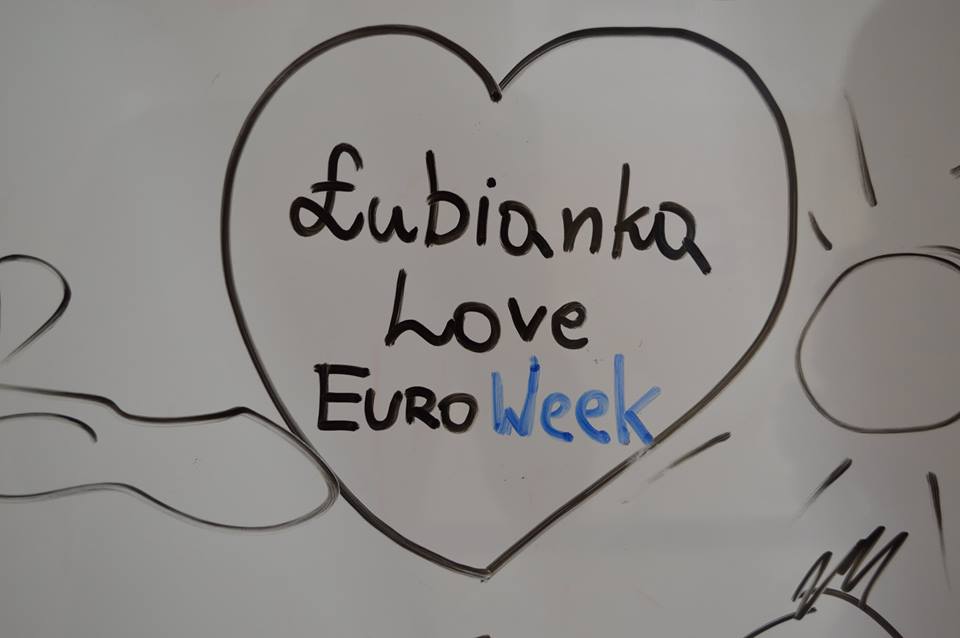 Łubianka
Love
EUROWeek